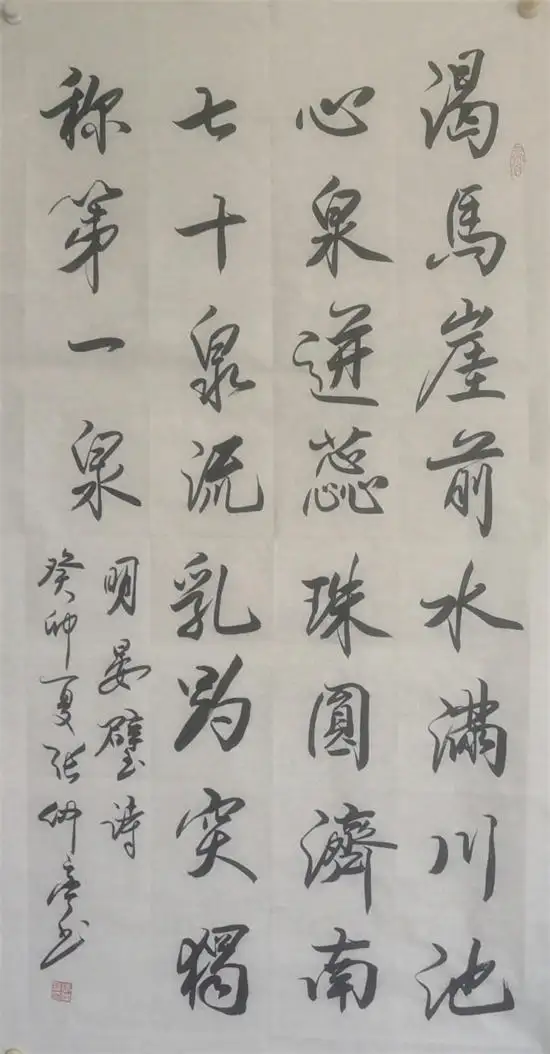 渴馬崖前水滿川池
心泉迸蕊珠圓濟南
七十泉流乳趵突獨
称第一泉
明晏璧诗
癸卯夏张仲亭书